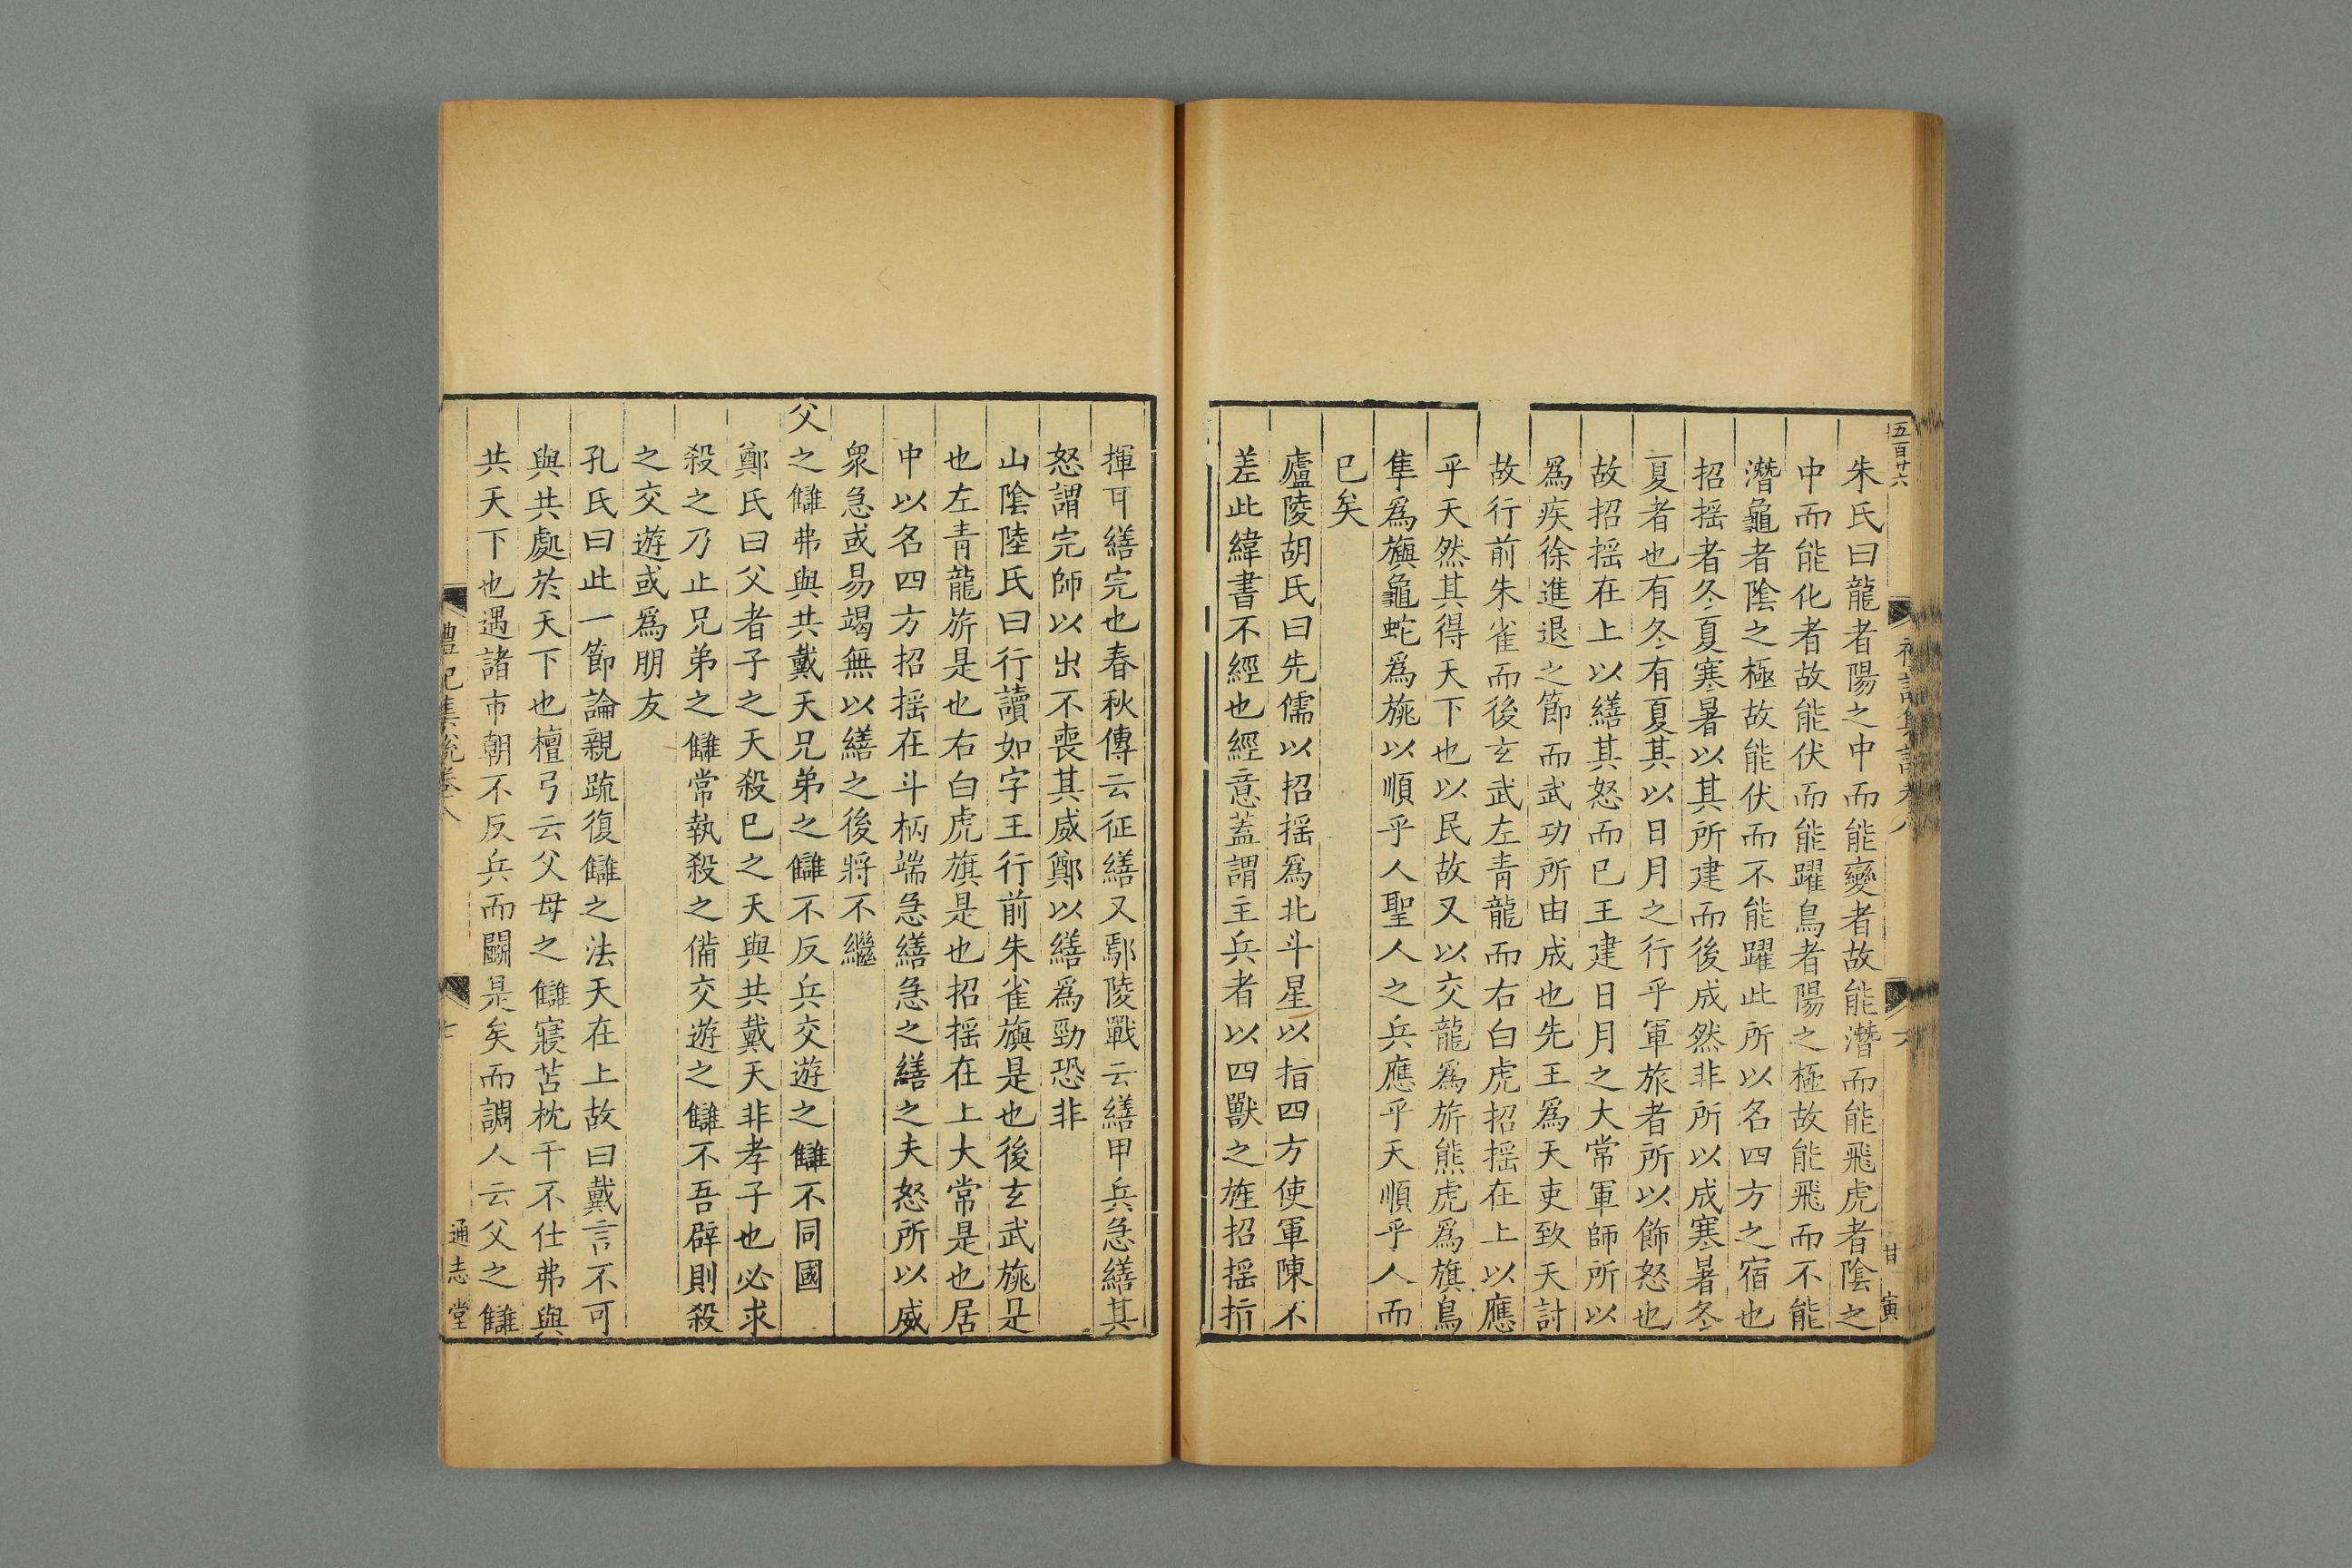 五百廿六
甘 寅
朱氏曰龍者陽之中而能變者故能潛而能飛虎者陰之
中而能化者故能伏而能躍鳥者陽之極故能飛而不能
潛龜者陰之極故能伏而不能躍此所以名四方之宿也
招搖者冬夏寒暑以其所建而後成然非所以成寒暑冬
夏者也有冬有夏其以日月之行乎軍旅者所以飾怒也
故招搖在上以繕其怒而已王建日月之大常軍師所以
爲疾徐進退之節而武功所由成也先王爲天吏致天討
故行前朱雀而後玄武左青龍而右白虎招搖在上以應
乎天然其得天下也以民故又以交龍爲旂熊虎爲旗鳥
隼爲旟龜蛇爲旐以順乎人聖人之兵應乎天順乎人而
已矣
廬陵胡氏曰先儒以招搖爲北斗星以指四方使軍陳不
差此緯書不經也經意蓋謂主兵者以四獸之旌招搖指
揮耳繕完也春秋傳云征繕又鄢陵戰云繕甲兵急繕其
怒謂完師以出不喪其威鄭以繕爲勁恐非
山陰陸氏曰行讀如字王行前朱雀旟是也後玄武旐是
也左青龍旂是也右白虎旗是也招搖在上大常是也居
中以名四方招搖在斗柄端急繕急之繕之夫怒所以威
衆急或易竭無以繕之後將不繼
父之讎弗與共戴天兄弟之讎不反兵交遊之讎不同國
鄭氏曰父者子之天殺已之天與共戴天非孝子也必求
殺之乃止兄弟之讎常執殺之備交遊之讎不吾辟則殺
之交遊或爲朋友
孔氏曰此一節論親疏復讎之法天在上故曰戴言不可
與共處於天下也檀弓云父母之讎寢苫枕干不仕弗與
共天下也遇諸市朝不反兵而鬬是矣而調人云父之讎
禮記集說卷八
七
通志堂